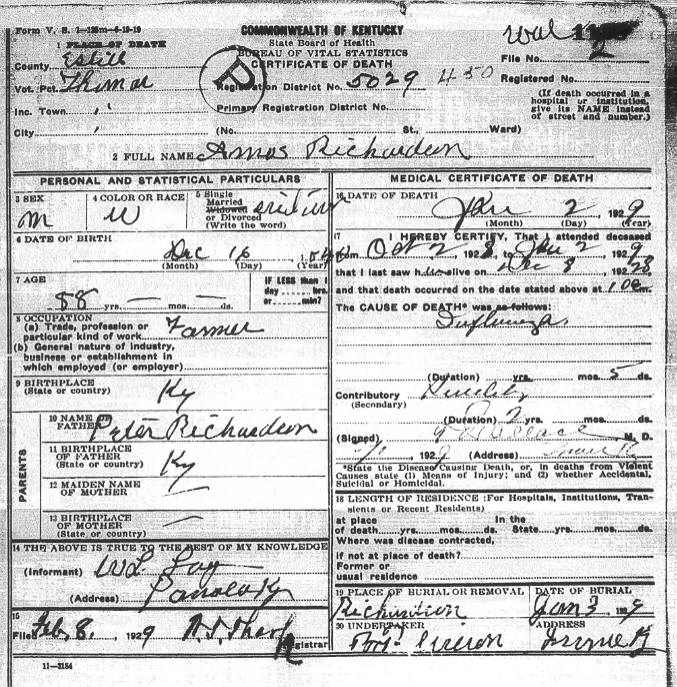 Form V. S. 1—125m—4-19-19
COMMONWEALTH OF KENTUCKY
State Board of Health
BUREAU OF VITAL STATISTICS
CERTIFICATE OF DEATH
1 PLACE OF DEATH
County Estill
Vot. Pct. Thomas
Inc. Town
City
(No. St., Ward)
Registration District No. 5029 450
Primary Registration District No.
File No. 2
Registered No.
(If death occurred in a
hospital or institution,
give its NAME instead
of street and number.)
2 FULL NAME Amos Richardson
PERSONAL AND STATISTICAL PARTICULARS
3 SEX
m
4 COLOR OR RACE
W
5 Single
Married
Widowed
or Divorced
(Write the word)
6 DATE OF BIRTH
Dec 16
(Month) (Day) (Year)
7 AGE
88 yrs. — mos. — ds.
IF LESS than 1
day hrs.
or min?
8 OCCUPATION
(a) Trade, profession or
particular kind of work Farmer
(b) General nature of industry,
business or establishment in
which employed (or employer)
9 BIRTHPLACE
(State or country) Ky
PARENTS
10 NAME OF
FATHER Peter Richardson
11 BIRTHPLACE
OF FATHER
(State or country) Ky
12 MAIDEN NAME
OF MOTHER —
13 BIRTHPLACE
OF MOTHER
(State or country) —
14 THE ABOVE IS TRUE TO THE BEST OF MY KNOWLEDGE
(Informant) W L
(Address) Panola Ky
15
Filed Feb. 8, 1929
Registrar
11—3184
MEDICAL CERTIFICATE OF DEATH
16 DATE OF DEATH
Jan 2 1929
(Month) (Day) (Year)
17 I HEREBY CERTIFY, That I attended deceased
from Oct 2 1928, to Jan 2, 1929
that I last saw him alive on Dec 8, 1928
and that death occurred on the date stated above at m.
The CAUSE OF DEATH* was as follows:
Influenza
(Duration) yrs. mos. 5 ds.
Contributory
(Secondary)
(Duration) 2 yrs. mos. ds.
(Signed) Wallace M. D.
1929 (Address)
*State the Disease Causing Death, or, in deaths from Violent
Causes state (1) Means of Injury; and (2) whether Accidental,
Suicidal or Homicidal.
18 LENGTH OF RESIDENCE (For Hospitals, Institutions, Tran-
sients or Recent Residents)
at place In the
of death yrs. mos. ds. State yrs. mos. ds.
Where was disease contracted,
if not at place of death?
Former or
usual residence
19 PLACE OF BURIAL OR REMOVAL
Richardson
DATE OF BURIAL
Jan 3 1929
20 UNDERTAKER
ADDRESS
Irvine Ky